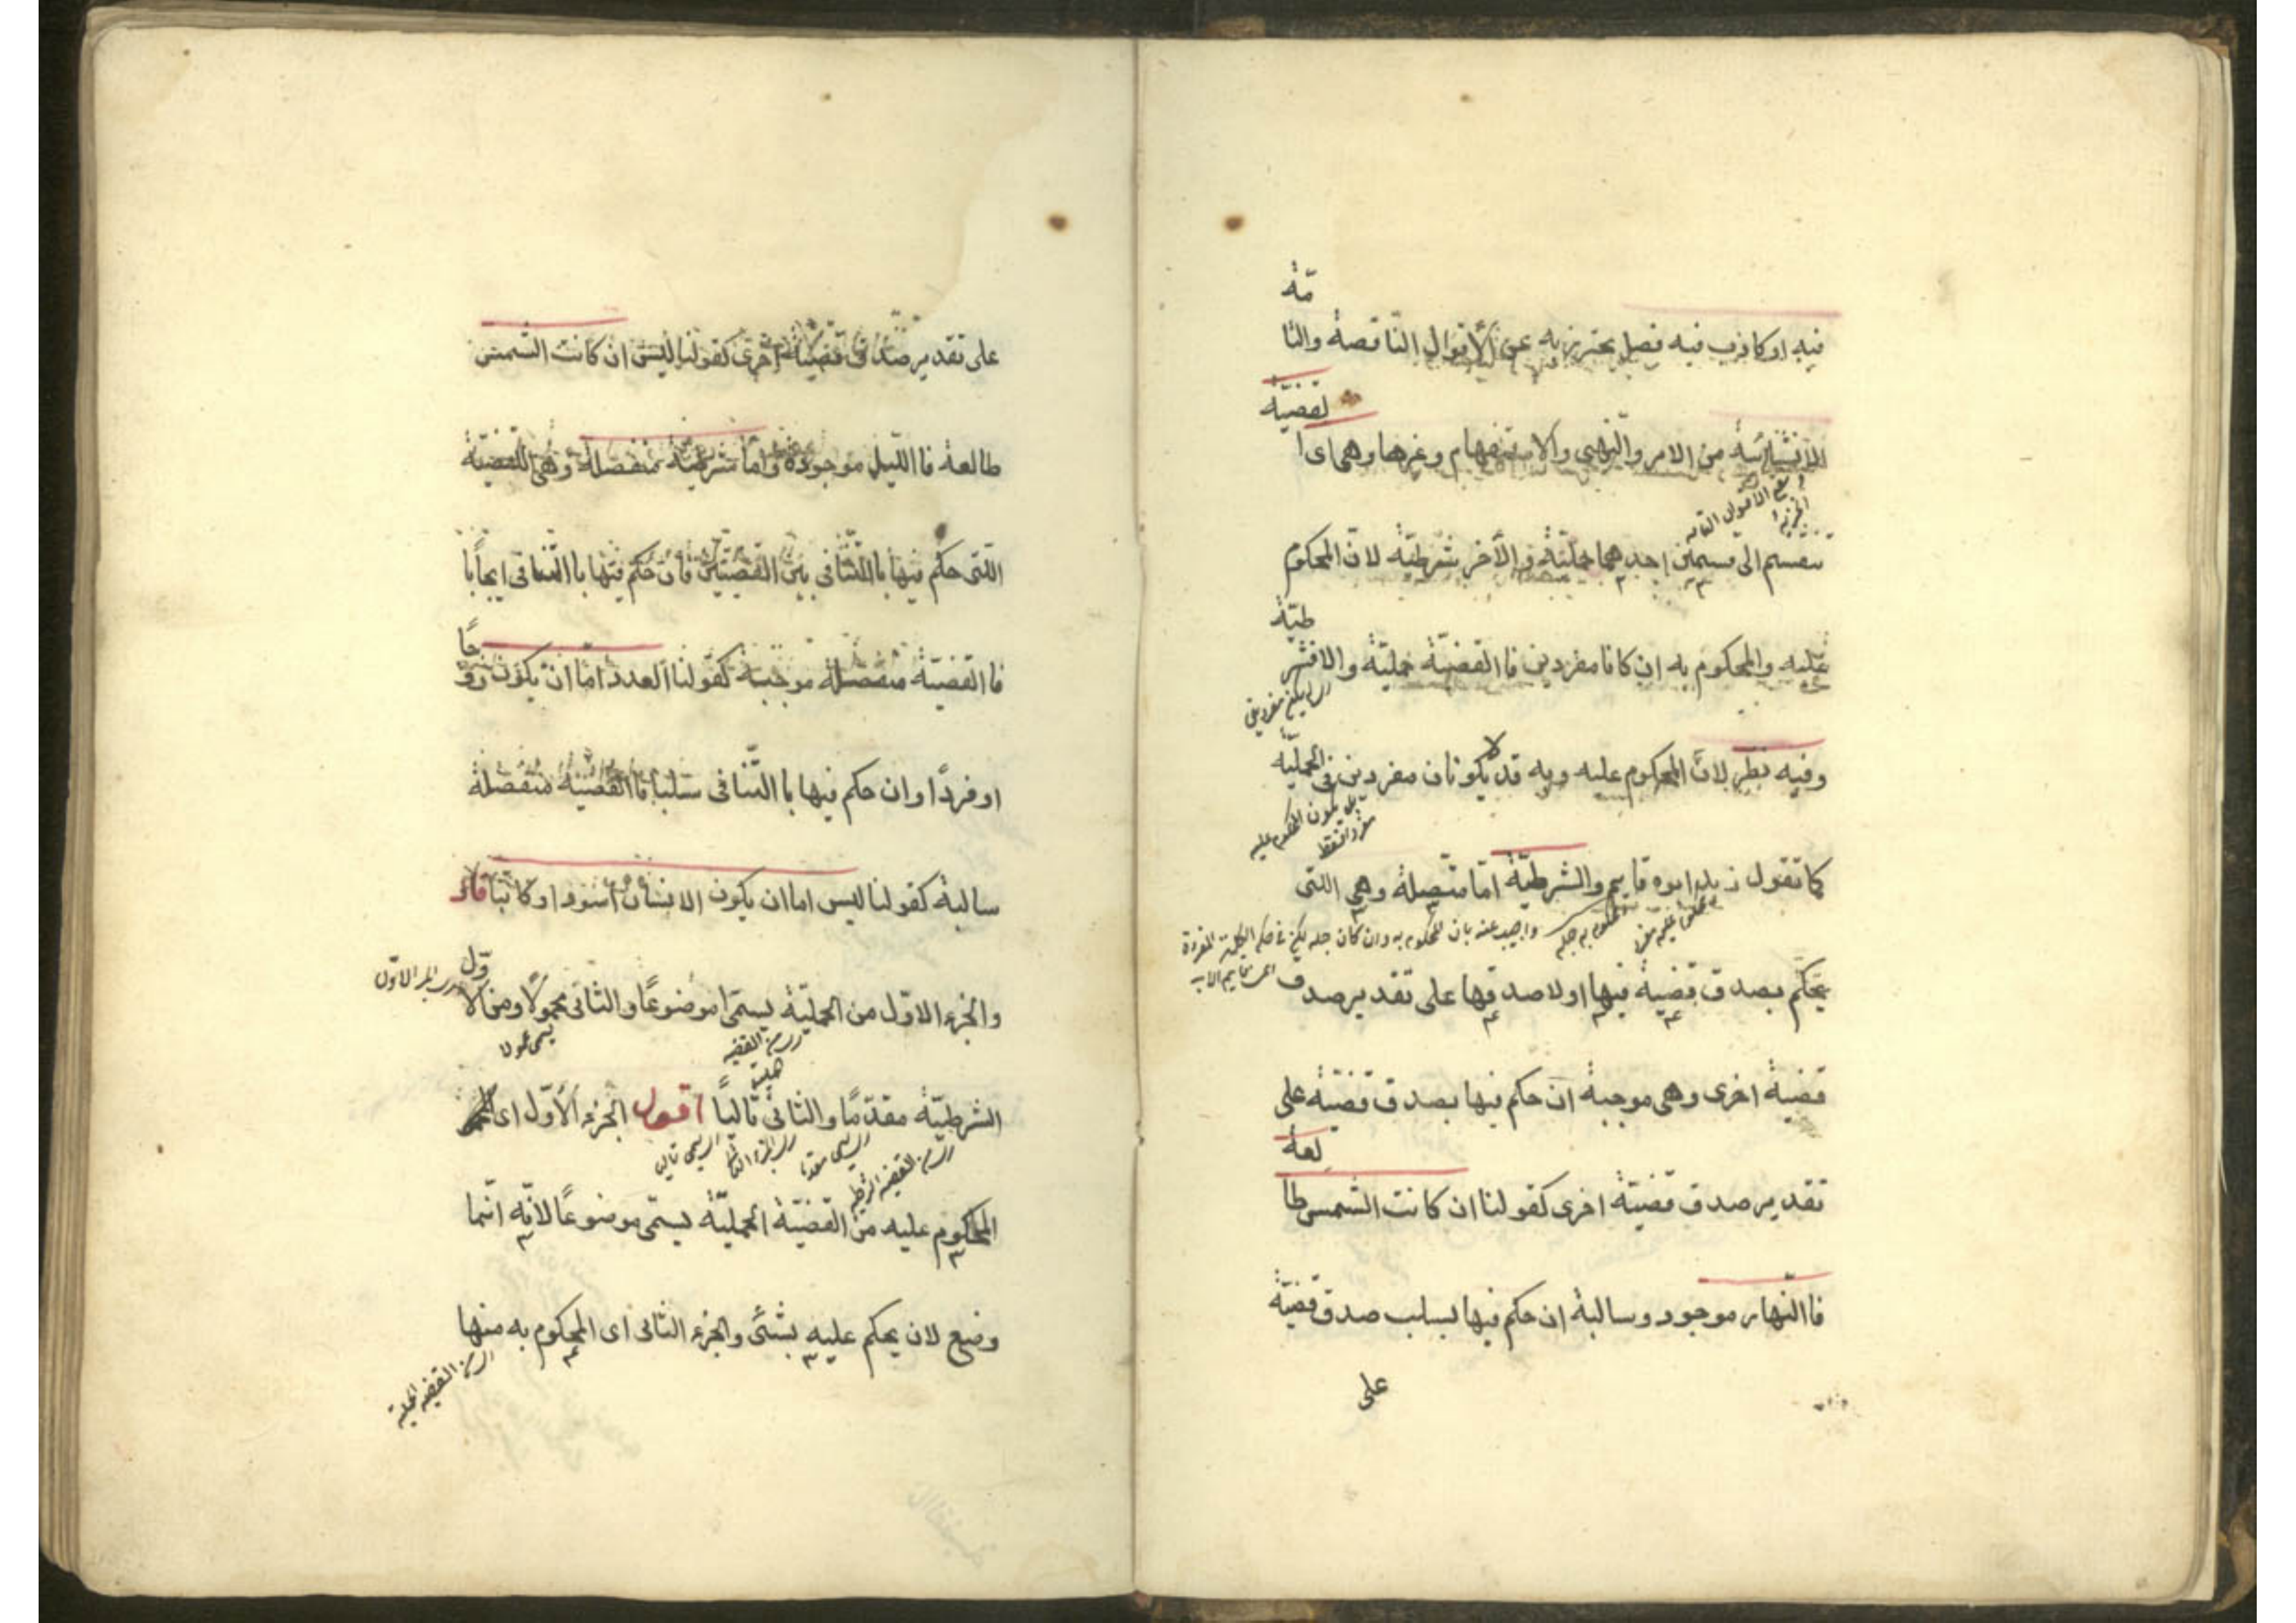 فيه او كاذب فيه فصل يحترز به عن الأقوال الناقصة والتا
مّة
الانشائية من الامر والنهى والاستفهام وغيرها وهى اى ا
لقضيّة
تنقسم الى قسمين احدهما حمليّة والأخر شرطيّة لانّ المحكوم
عليه والمحكوم به ان كانا مفردين فاالقضيّة حمليّة والا فشر
طيّة
وفيه نظر لانّ المحكوم عليه وبه قد لا يكونان مفردين فى الحمليّة
بل يكون المحكوم عليه
مفردا فقط
كما تقول زيد ابوه قايم والشرطيّة امّا متّصلة وهى اللتى
محكوم عليه مفرد
محكوم به جمله
واجيب عنه بان المحكوم به وان كان جمله لكن فى حكم الكلمة المفردة
يحكم بصدق قضية فيها او لا صدقها على تقدير صدق
قضية اخرى وهى موجبة ان حكم فيها بصدق قضيّة على
تقدير صدق قضيّة اخرى كقولنا ان كانت الشمس طا
لعة
فاالنّهار موجود وسالبة ان حكم فيها بسلب صدق قضيّة
على
على تقدير صدق قضيّة اخرى كقولنا ليس ان كانت الشمس
طالعة فاالليل موجودة وامّا شرطيّة منفصلة وهى القضيّة
اللتى حكم فيها باالتّنافى بين القضيّتين فان حكم فيها باالتّنافى ايجابًا
فاالقضيّة منفصلة موجبة كقولنا العدد امّا ان يكون زو
جًا
او فردًا وان حكم فيها باالتّنافى سلبا فاالقضيّة منفصلة
سالبة كقولنا ليس اما ان يكون الانسان اسود او كاتبًا قال
والجزء الاوّل من الحمليّة يسمّى موضوعًا والثانى محمولًا ومن الا
وّل
الشرطيّة مقدّمًا والثانى تاليًا اقول الجزء الأوّل اى
المحكوم عليه من القضيّة الحمليّة يسمّى موضوعًا لانّه انّما
وضع لان يحكم عليه بشئ والجزء الثانى اى المحكوم به منها